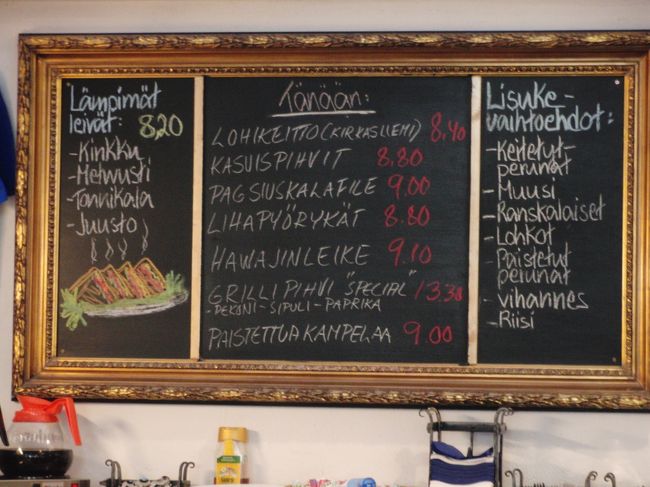 Lämpimät
leivät: 8,20
- Kinkku
- Metwusti
- Tonnikala
- Juusto
Tänään:
LOHIKEITTO (KIRKASLIEMI) 8.40
KASVISPIHVIT 8.80
PAGSIUSKALAFILE 9.00
LIHAPYÖRYKÄT 8.80
HAWAJINLEIKE 9.10
GRILLIPIHVI "SPECIAL" 13.30
- PEKONI - SIPULI - PAPRIKA
PAISTETTUA KAMPELAA 9.00
Lisuke-
vaihtoehdot:
- Keitetyt-
perunat
- Muusi
- Ranskalaiset
- Lohkot
- Paistetut
perunat
- vihannes
- Riisi